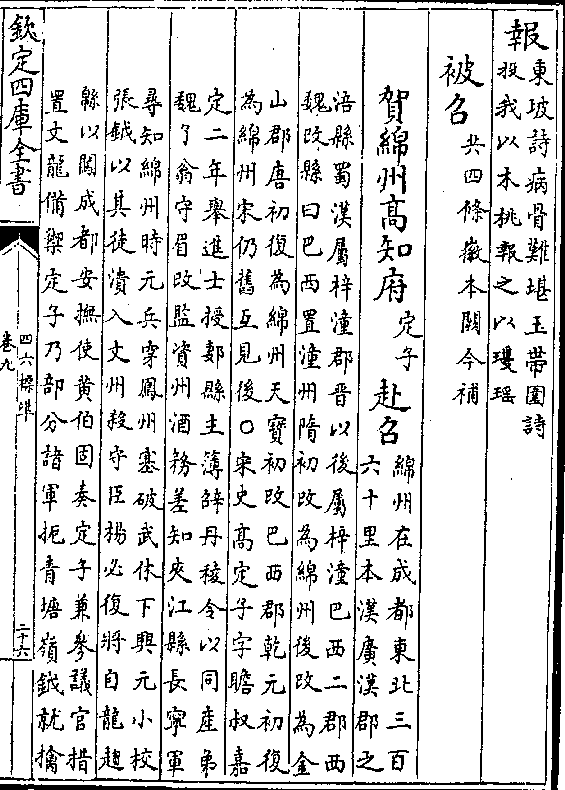 報東坡詩病骨難堪玉帶圍詩
投我以木桃報之以瓊瑶
被召共四條徽本闕今補
賀綿州高知府定子赴召綿州在成都東北三百
六十里本漢廣漢郡之
涪縣蜀漢屬梓潼郡晉以後屬梓潼巴西二郡西
魏改縣曰巴西置潼州隋初改為綿州後改為金
山郡唐初復為綿州天寶初改巴西郡乾元初復
為綿州宋仍舊互見後○宋史高定子字瞻叔嘉
定二年舉進士授郪縣主簿辟丹稜令以同産弟
魏了翁守眉改監資州酒務差知夾江縣長寧軍
尋知綿州時元兵穿鳳州塞破武休下興元小校
張鉞以其徒潰入文州殺守臣楊必復將自龍趨
緜以闖成都安撫使黄伯固奏定子兼參議官措
置文龍備禦定子乃部分諸軍扼青塘嶺鉞就擒
欽定四庫全書
四六標準
卷九
二十六